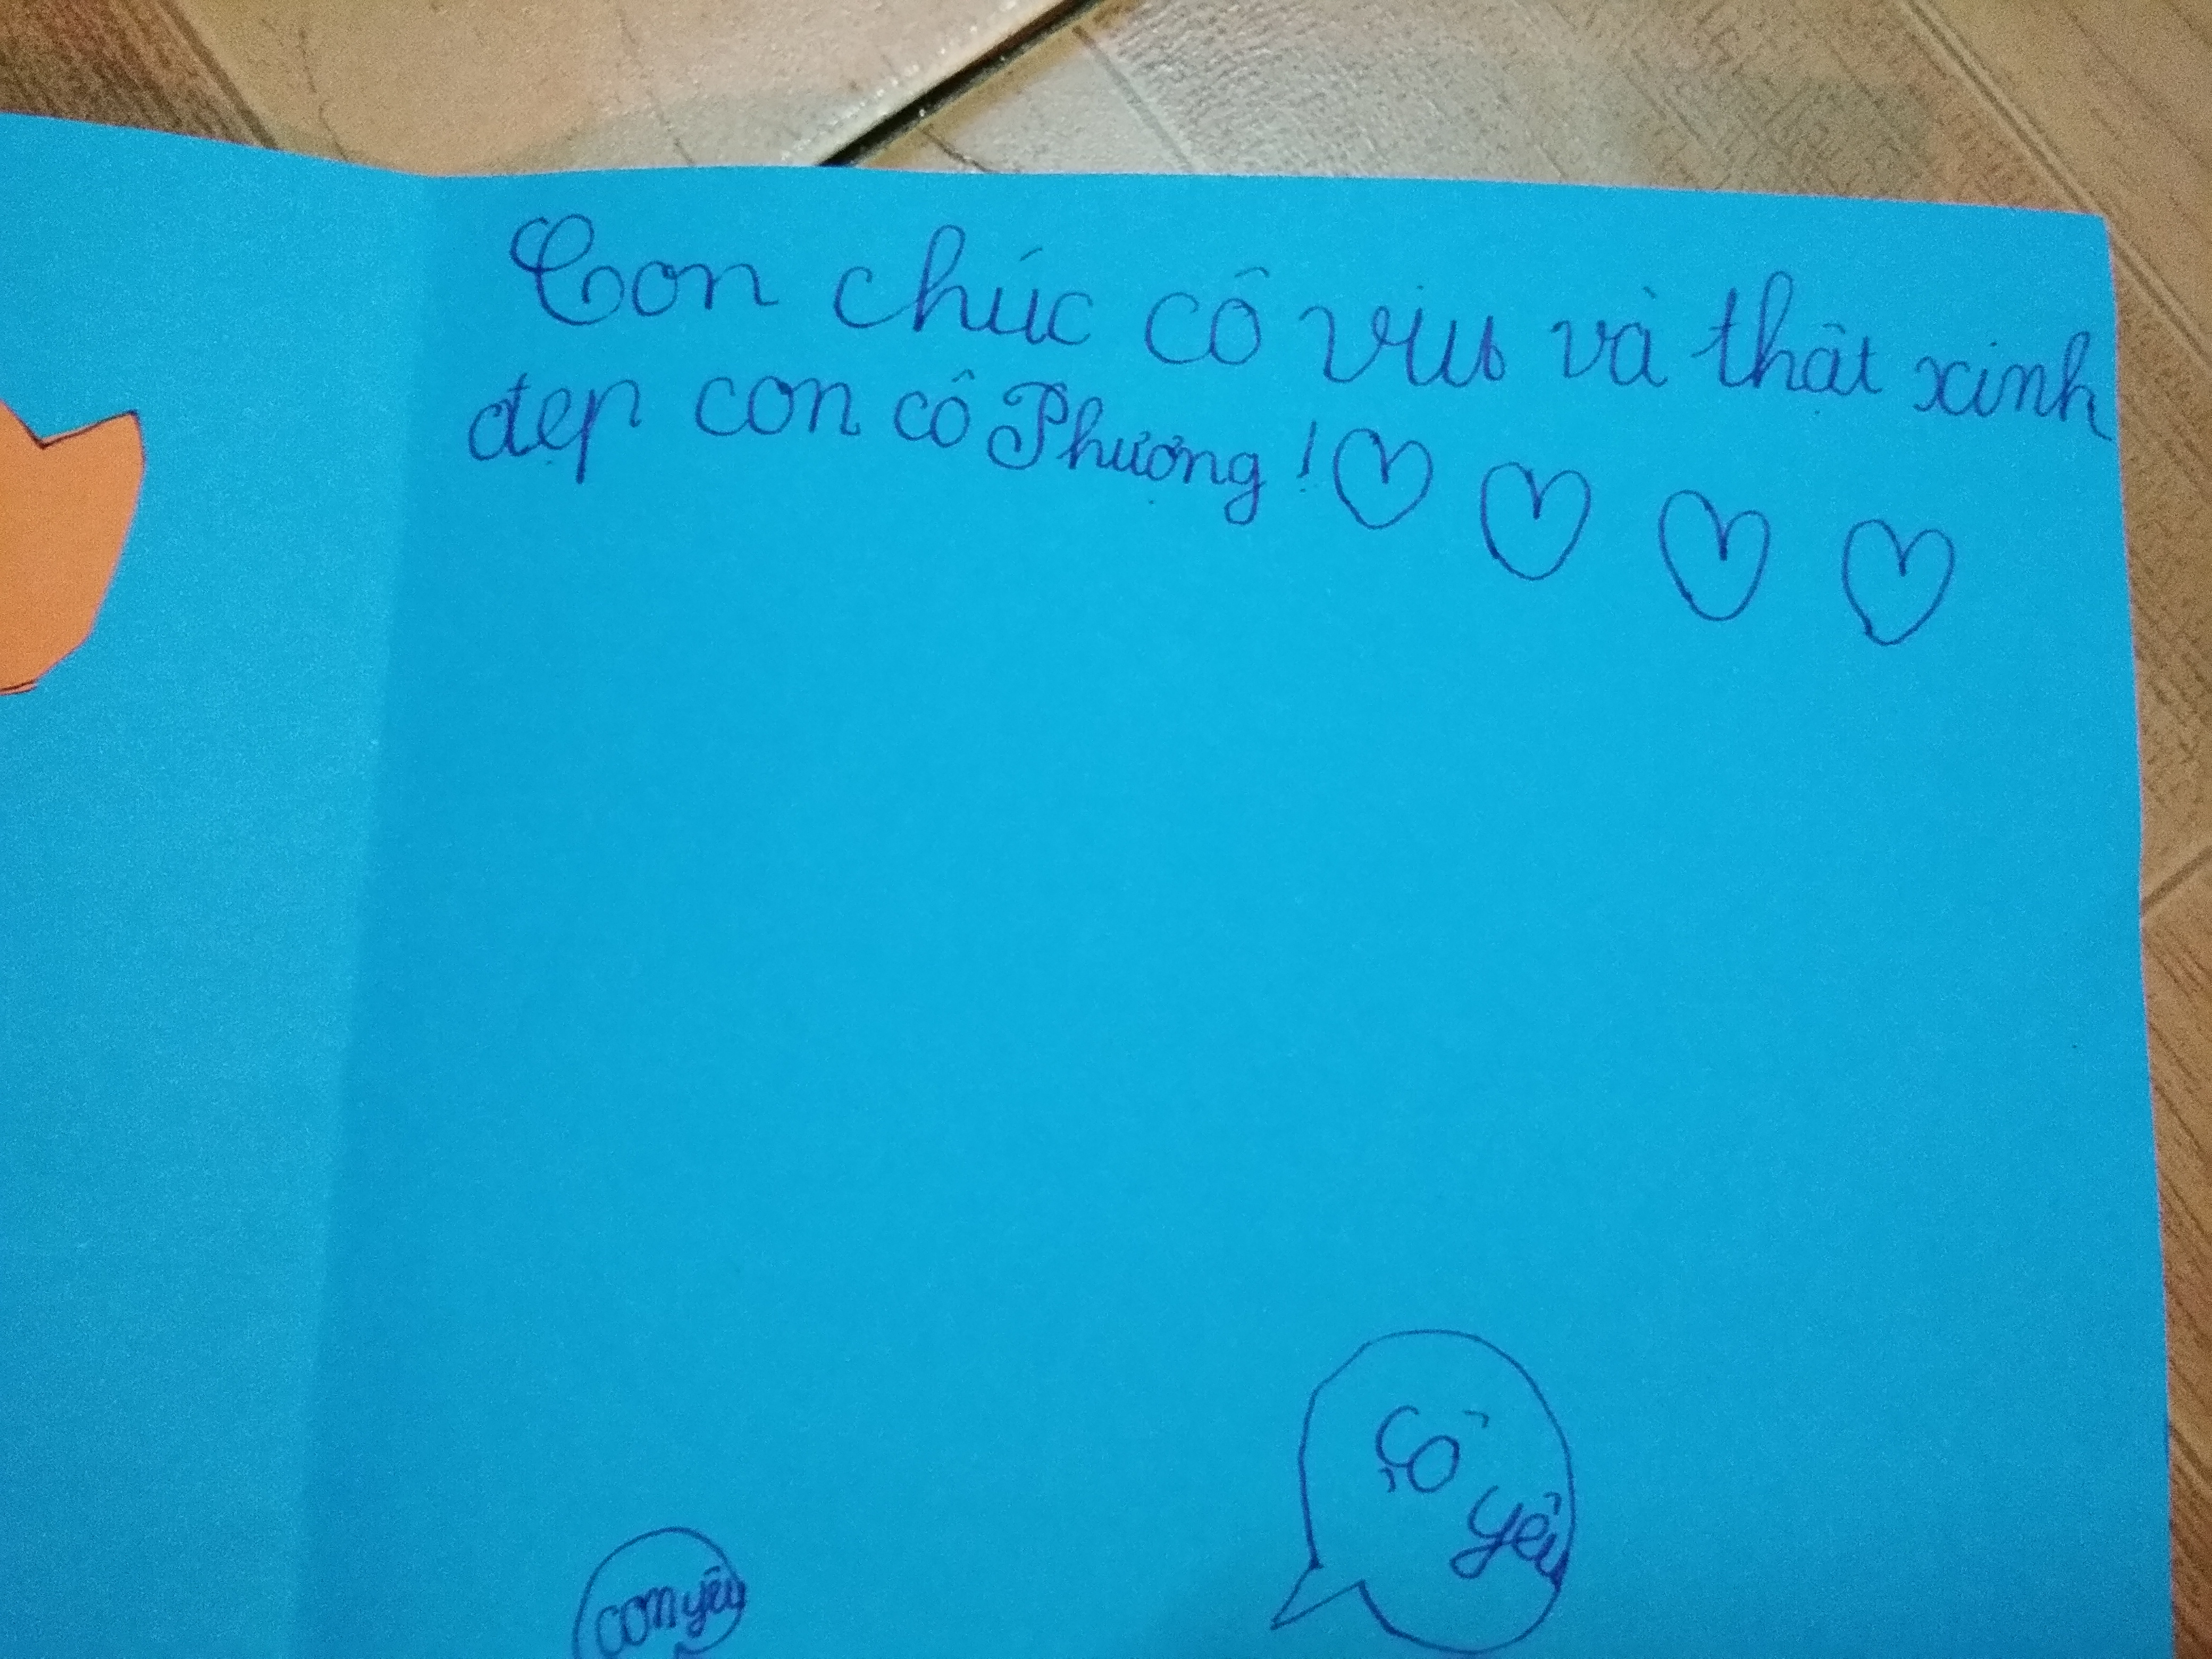 Con chúc cô vui và thật xinh
đẹp con cô Phương!
Cô
yêu
con yêu